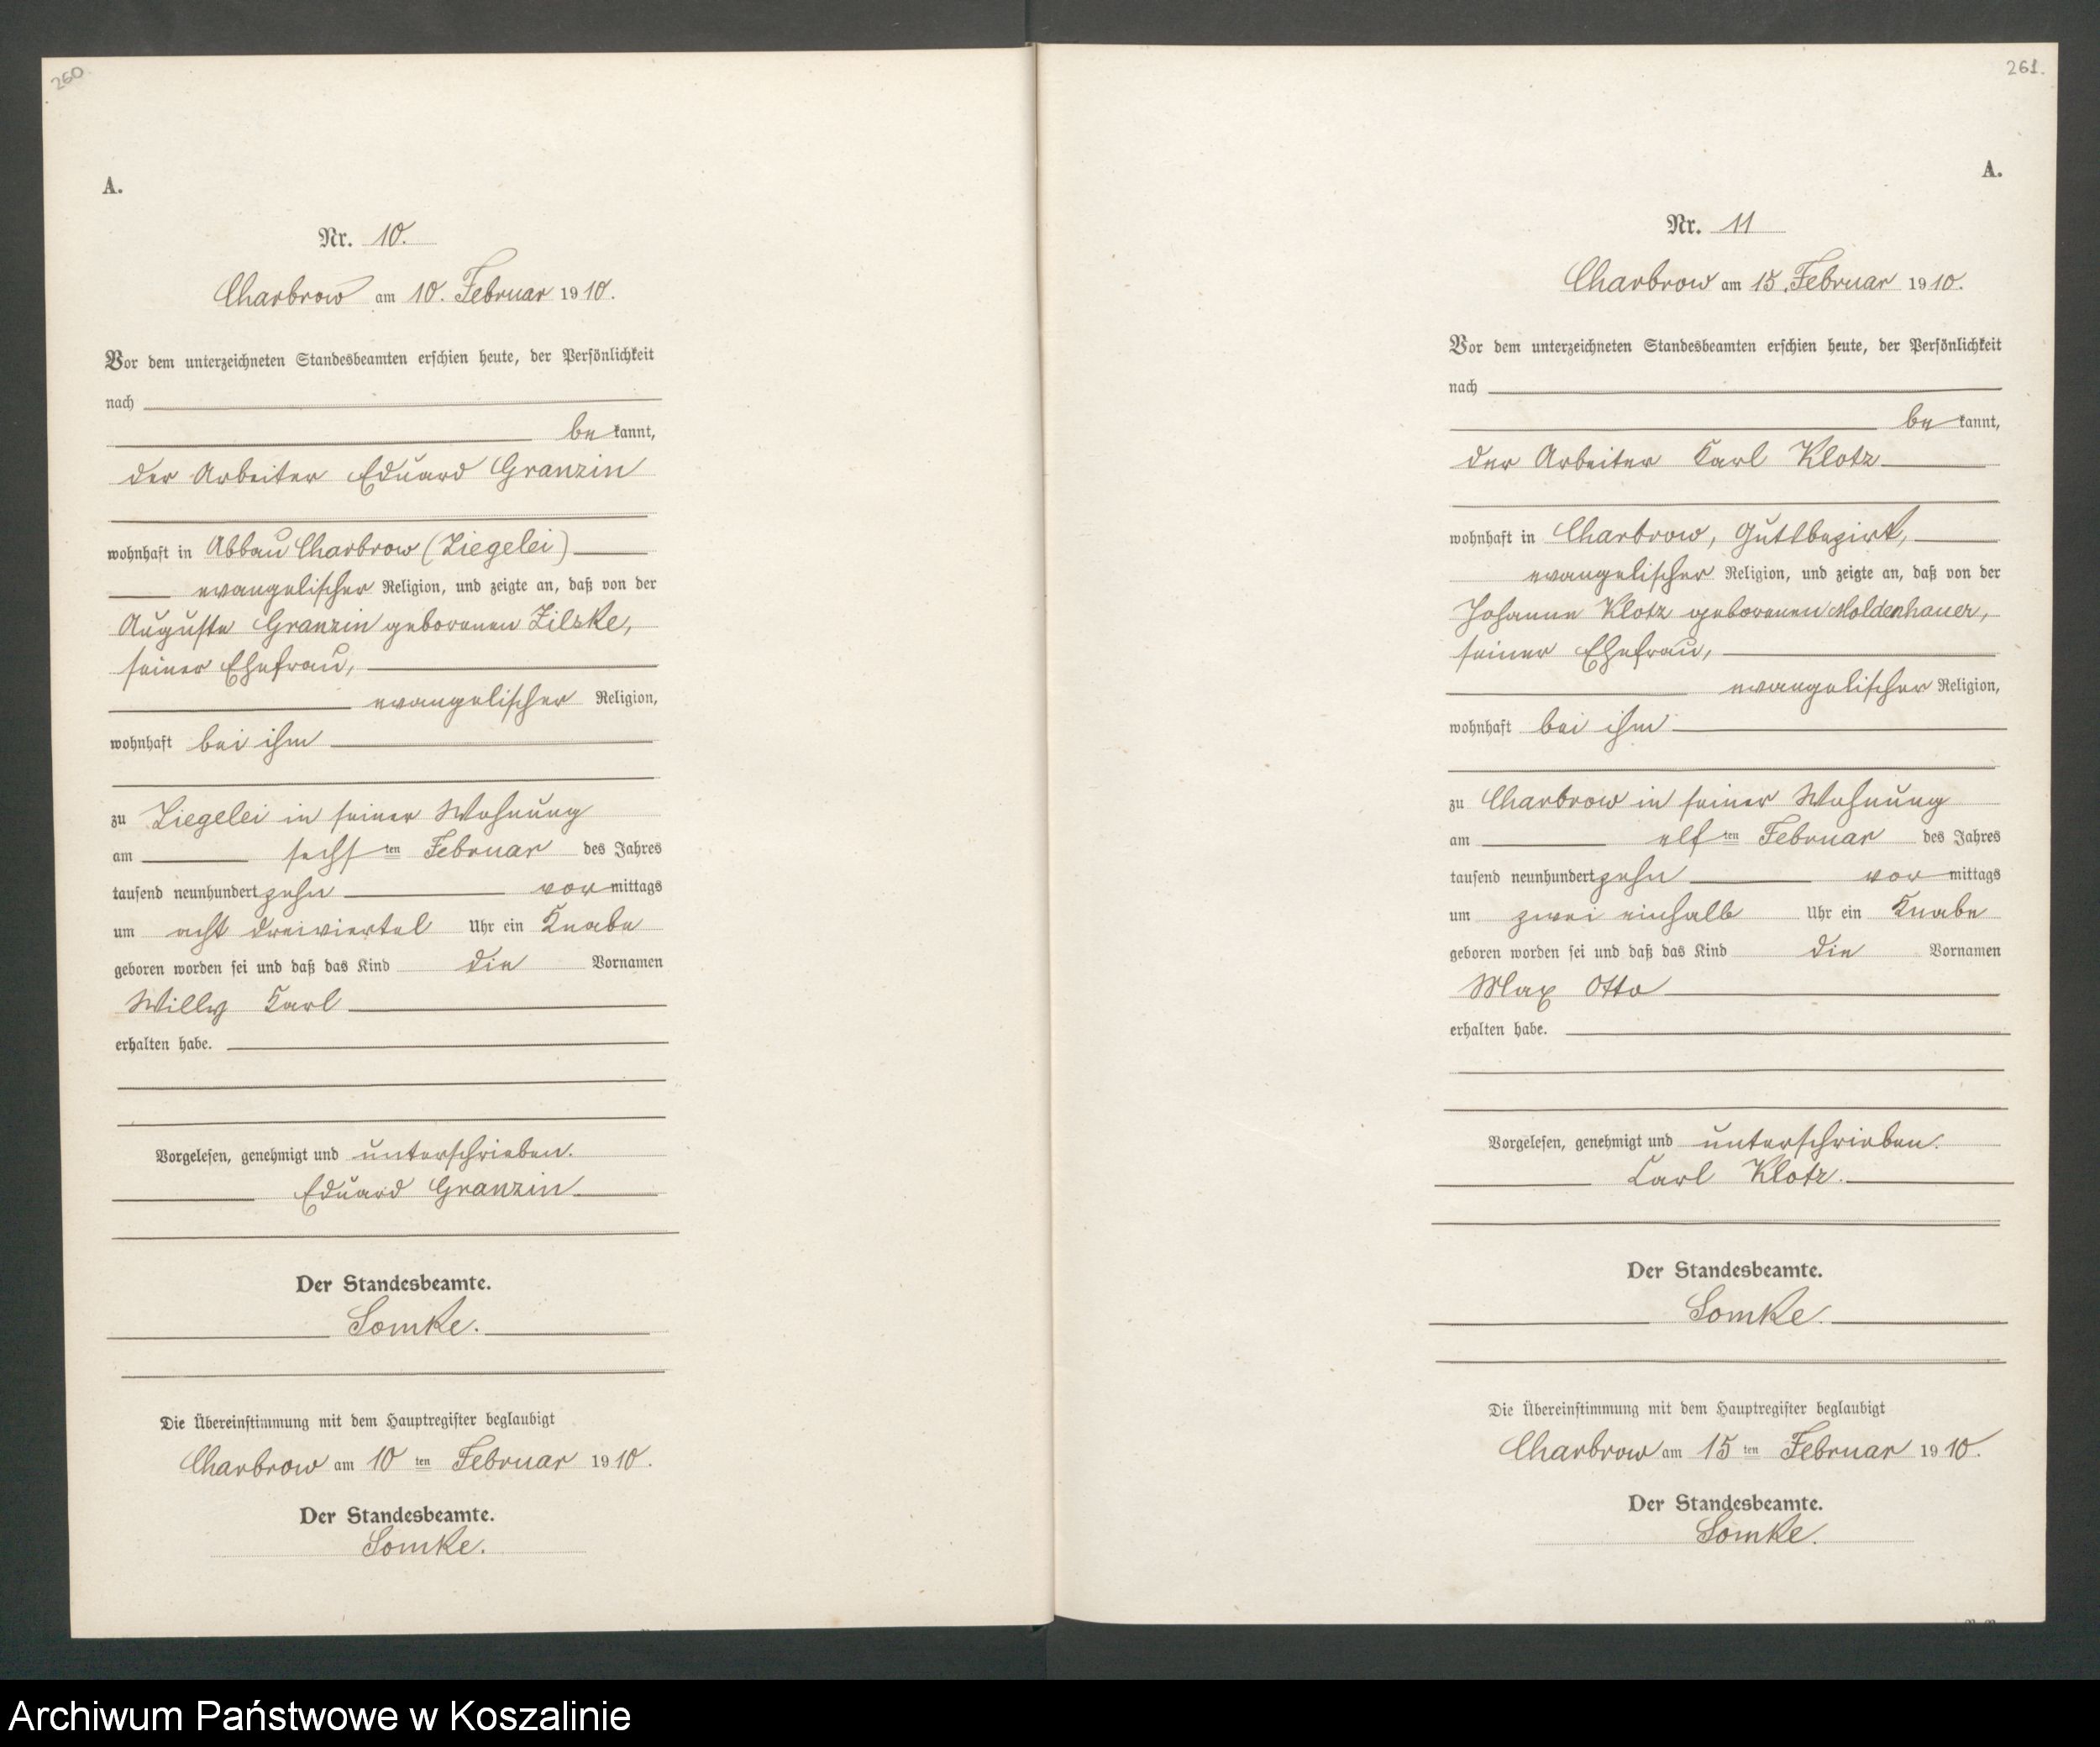 260.
A.
Nr. 10.
Charbrow am 10. Februar 1910.
Vor dem unterzeichneten Standesbeamten erschien heute, der Persönlichkeit
nach
be kannt,
der Arbeiter Eduard Granzin
wohnhaft in Abbau Charbrow (Ziegelei)
evangelischer Religion, und zeigte an, daß von der
Auguste Granzin geborenen Zilske,
seiner Ehefrau,
evangelischer Religion,
wohnhaft bei ihm
zu Ziegelei in seiner Wohnung
am sechsten Februar des Jahres
tausend neunhundert zehn vormittags
um acht dreiviertel Uhr ein Knabe
geboren worden sei und daß das Kind die Vornamen
Willy Karl
erhalten habe.
Vorgelesen, genehmigt und unterschrieben.
Eduard Granzin
Der Standesbeamte.
Somke.
Die Übereinstimmung mit dem Hauptregister beglaubigt
Charbrow am 10 ten Februar 1910.
Der Standesbeamte.
Somke.
261.
A.
Nr. 11
Charbrow am 15. Februar 1910.
Vor dem unterzeichneten Standesbeamten erschien heute, der Persönlichkeit
nach
be kannt,
der Arbeiter Karl Klotz
wohnhaft in Charbrow, Gutsbezirk,
evangelischer Religion, und zeigte an, daß von der
Johanne Klotz geborenen Moldenhauer,
seiner Ehefrau,
evangelischer Religion,
wohnhaft bei ihm
zu Charbrow in seiner Wohnung
am elften Februar des Jahres
tausend neunhundert zehn vor mittags
um zwei einhalb Uhr ein Knabe
geboren worden sei und daß das Kind die Vornamen
Max Otto
erhalten habe.
Vorgelesen, genehmigt und unterschrieben.
Carl Klotz.
Der Standesbeamte.
Somke.
Die Übereinstimmung mit dem Hauptregister beglaubigt
Charbrow am 15 ten Februar 1910.
Der Standesbeamte.
Somke.
Archiwum Państwowe w Koszalinie